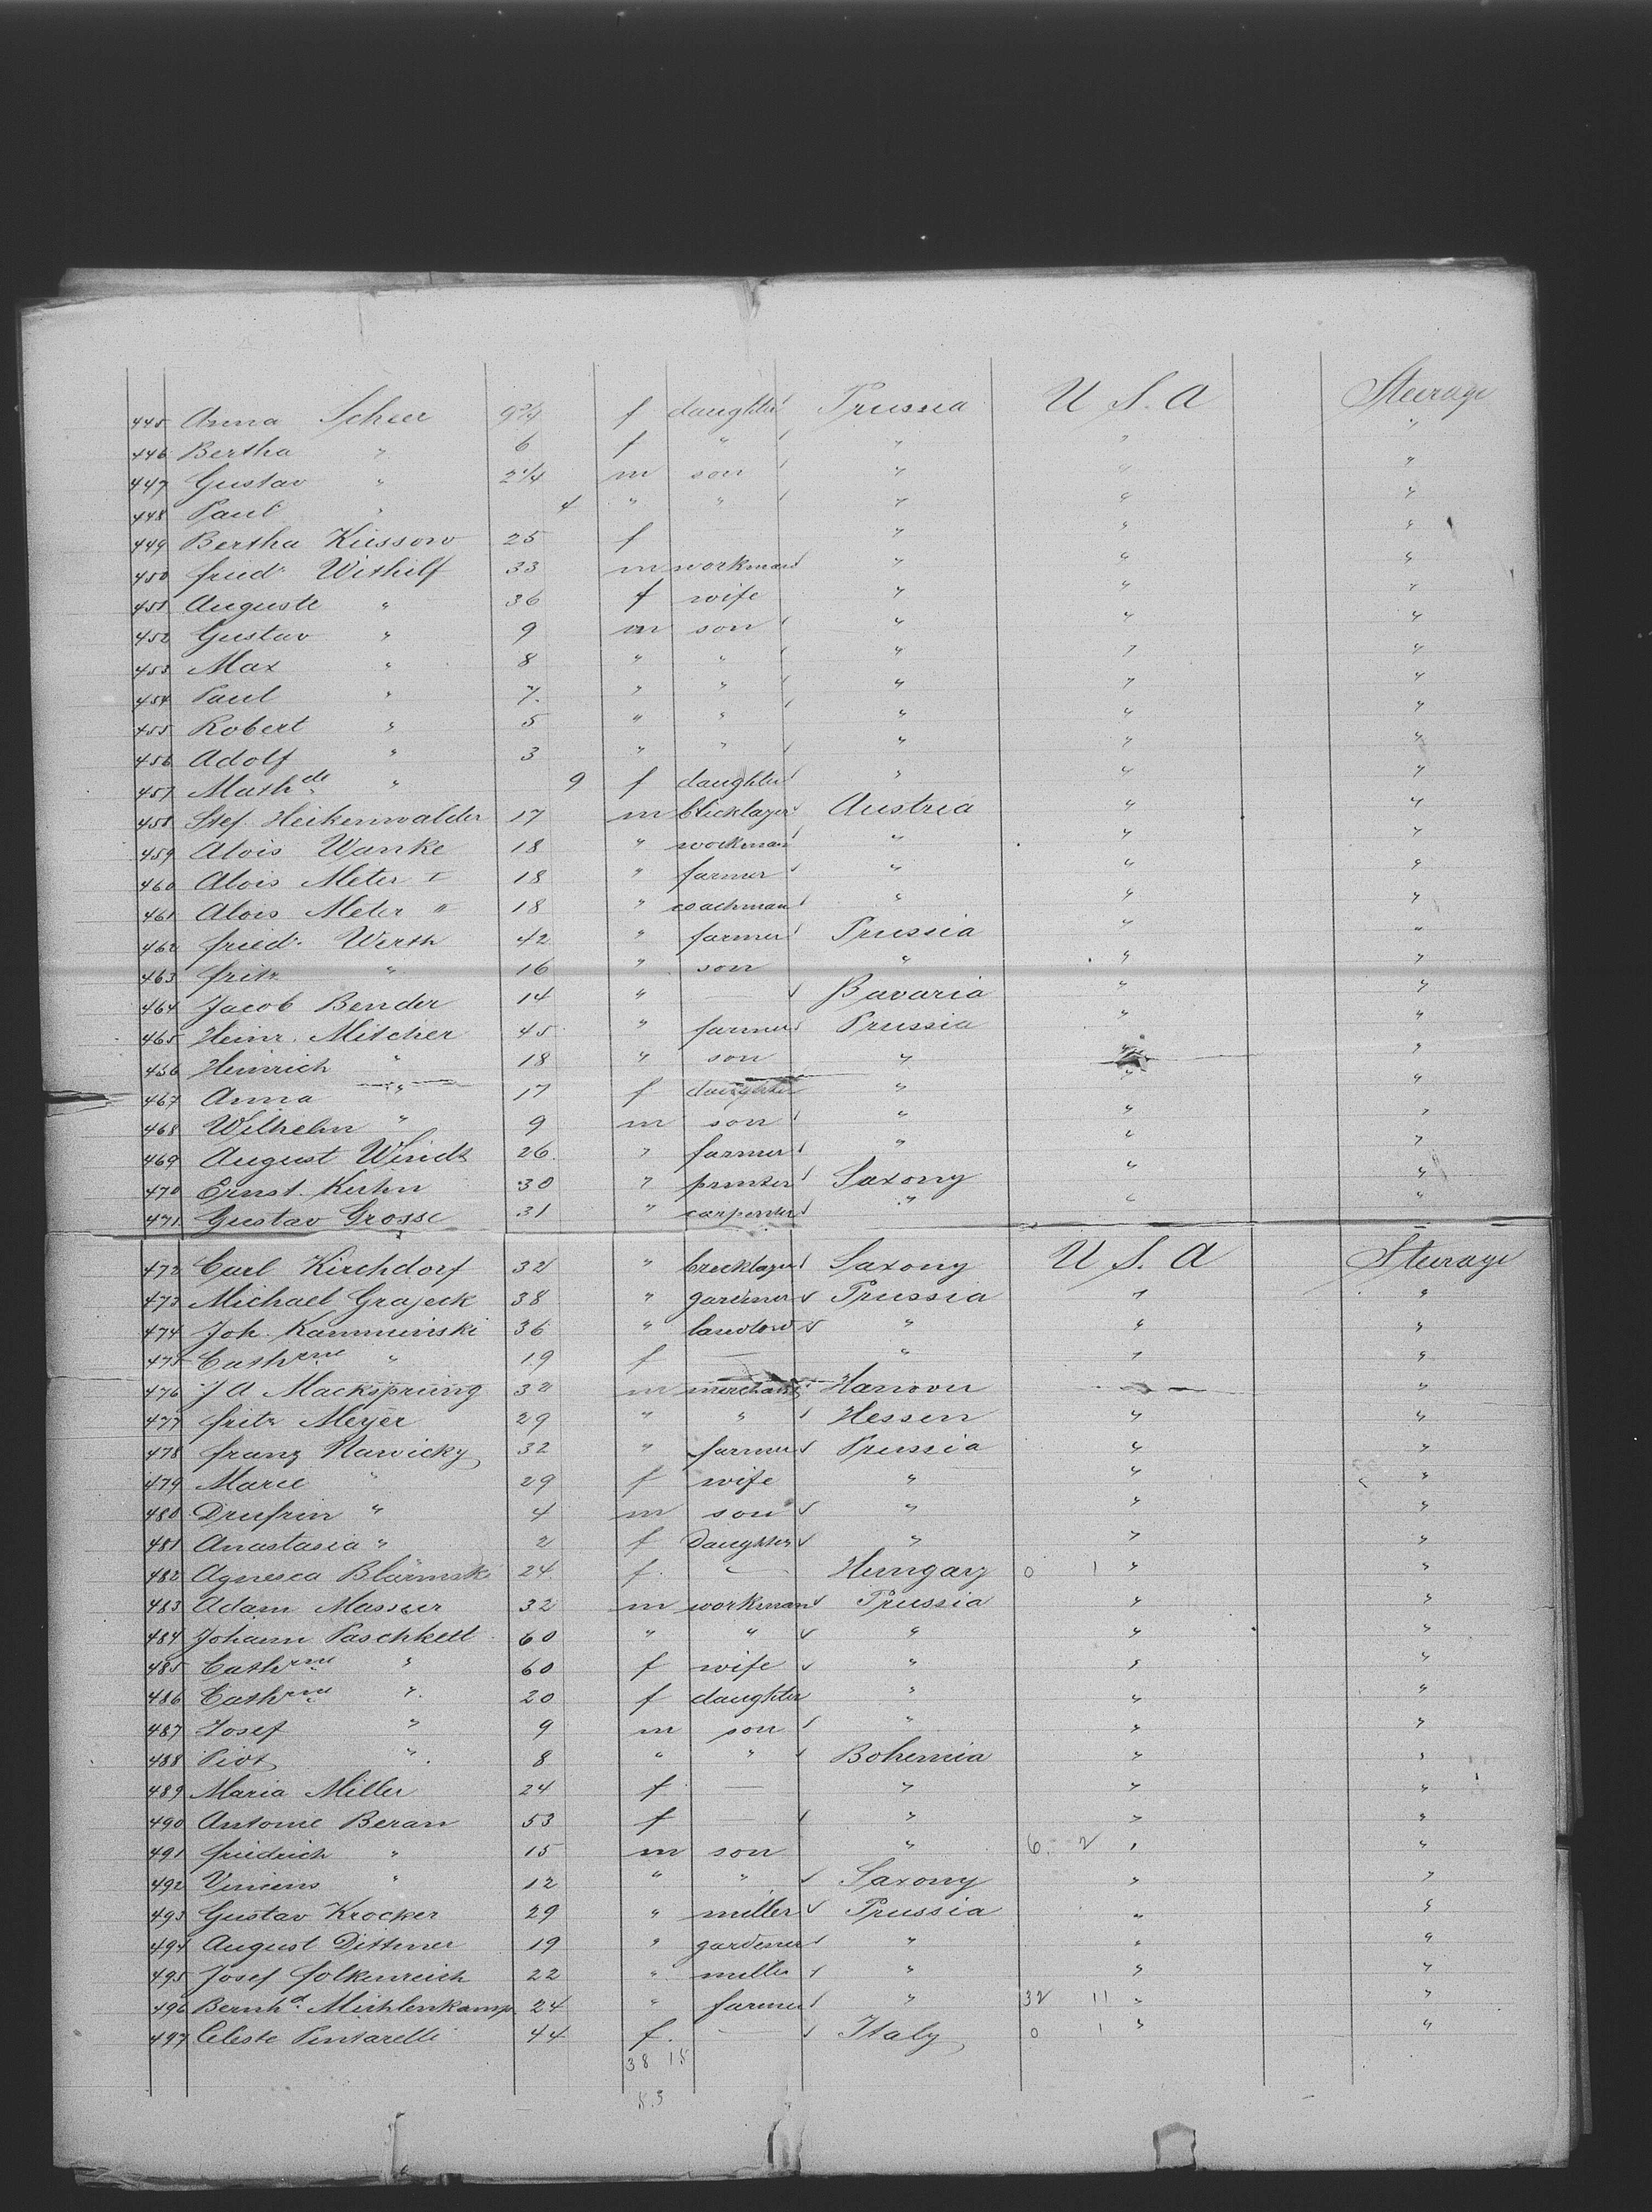 445 Anna Scheer 9 3/4 f daughter Prussia U.S.A Steerage
446 Bertha " 6 f " " " "
447 Gustav " 2 1/4 m son " " "
448 Paul " 4 " " " " "
449 Bertha Küssow 25 f " " "
450 fried. Withilf 33 m workman " " "
451 Auguste " 36 f wife " " "
452 Gustav " 9 m son " " "
453 Max " 8 " " " " "
454 Paul " 7 " " " " "
455 Robert " 5 " " " " "
456 Adolf " 3 " " " " "
457 Mathde " 9 f daughter " " "
458 Stef. Heikenwalder 17 m bricklayer Austria " "
459 Alois Wanke 18 " workman " " "
460 Alois Meter I 18 " farmer " " "
461 Alois Meter II 18 " coachman " " "
462 fried. Werth 42 " farmer Prussia " "
463 fritz " 16 " son " " "
464 Jacob Bender 14 " — Bavaria " "
465 Heinr. Mitcher 45 " farmer Prussia " "
456 Heinrich " 18 " son " " "
467 Anna " 17 f daughter " " "
468 Wilhelm " 9 m son " " "
469 August Windt 26 " farmer " " "
470 Ernst Kuhn 30 " printer Saxony " "
471 Gustav Grosse 31 " carpenter " " "
472 Carl Kirchdorf 32 " bricklayer Saxony U.S.A Steerage
473 Michael Grajeck 38 " gardener Prussia " "
474 Joh. Kamminski 36 " landlord " " "
475 Cathrine " 19 f — " " "
476 J A Macksprung 32 m merchant Hanover "
477 fritz Meyer 29 " " Hessen " "
478 franz Nawicky 32 " farmer Prussia " "
479 Marie " 29 f wife " " "
480 " 4 m son " " "
481 Anastasia " 2 f Daughter " " "
482 Agnesca 24 f. — Hungary 0 1 " "
483 Adam Masser 32 m workman Prussia " "
484 Johann Paschkett 60 " " " " "
485 Cathrine " 60 f wife " " "
486 Cathrine " 20 f daughter " " "
487 Josef " 9 m son " " "
488 Piot " 8 " " Bohemia " "
489 Maria Miller 24 f — " " "
490 Antonie Beran 53 f — " " "
491 friedrich " 15 m son " 6 2 " "
492 Vincens " 12 " " Saxony " "
493 Gustav Krocker 29 " miller Prussia " "
494 August Dittmer 19 " gardener " " "
495 Josef folkenreich 22 " miller " " "
496 Bernhd. Mühlenkamp 24 " farmer " 32 11 " "
497 Celeste Pintarelli 44 f. — Italy 0 1 " "
38 15
53